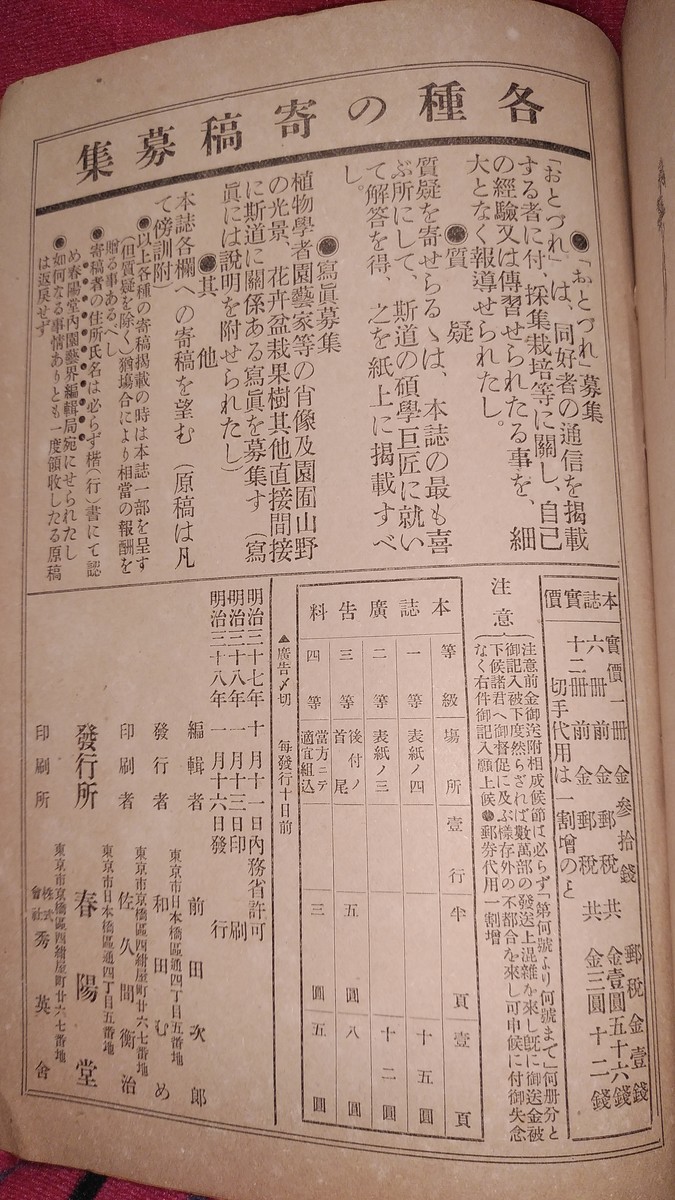 各種の寄稿募集
●「おとづれ」募集
「おとづれ」は、同好者の通信を掲載
する者に付、採集栽培等に關し、自己
の經驗又は傳習せられたる事を、細
大となく報導せられたし。
●質疑
質疑を寄せらるゝは、本誌の最も喜
ぶ所にして、斯道の碩學巨匠に就い
て解答を得、之を紙上に掲載すべ
し。
●寫眞募集
植物學者園藝家等の肖像及園囿山野
の光景、花卉盆栽果樹其他直接間接
に斯道に關係ある寫眞を募集す（寫
眞には説明を附せられたし）
●其他
本誌各欄への寄稿を望む（原稿は凡
て傍訓附）
●以上各種の寄稿掲載の時は本誌一部を呈す
（但質疑を除く）猶塲合により相當の報酬を
贈る事あるべし
●寄稿者の住所氏名は必らず楷（行）書にて認
め春陽堂内園藝界編輯局宛にせられたし
●如何なる事情ありとも一度領收したる原稿
は返戻せず
本誌實價
實價一冊金參拾錢 郵税金壹錢
六冊前金郵税共金壹圓五十六錢
十二冊前金郵税共金三圓十二錢
切手代用は一割增のと
注意
注意前金御送附相成候節は必らず「第何號より何號まで」何冊分と
御記入被下度然らざれば數萬部の發送上混雜を來し既に御送金被
下候諸君へ御督促に及ぶ樣存外の不都合を來し可申候に付御失念
なく右件御記入願上候●郵券代用一割增
本誌廣告料
等級 塲所 壹行 半頁 壹頁
一等 表紙ノ四 十五圓
二等 表紙ノ三 十二圓
三等 後付ノ首尾 五圓 八圓
四等 當方ニテ適宜組込 三圓 五圓
▲廣告〆切 每發行十日前
明治三十七年十月十一日内務省許可
明治三十八年一月十三日印刷
明治三十八年一月十六日發行
編輯者 前田次郎
東京市日本橋區通四丁目五番地
發行者 和田むめ
東京市京橋區西紺屋町廿六七番地
印刷者 佐久間衡治
東京市日本橋區通四丁目五番地
發行所 春陽堂
東京市京橋區西紺屋町廿六七番地
印刷所 株式會社秀英舍